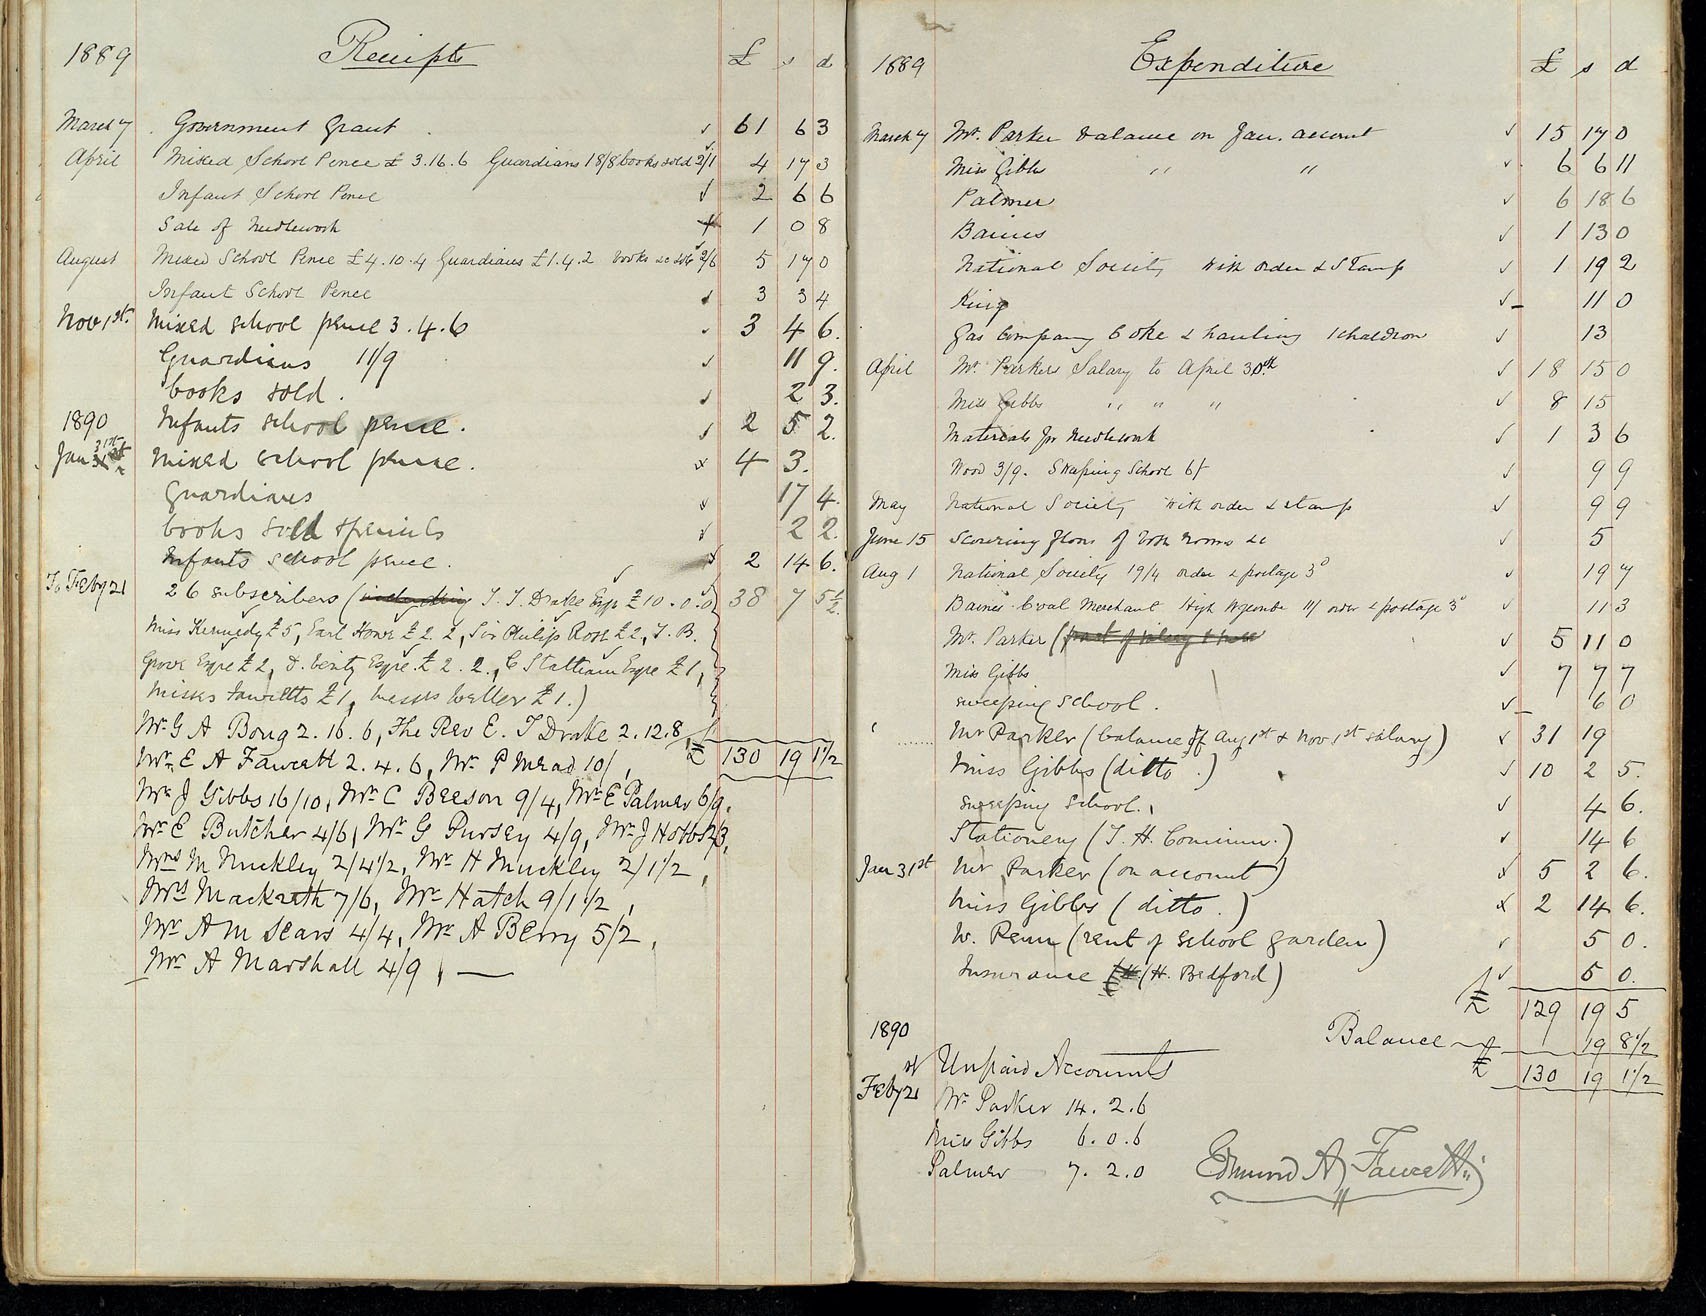 1889 Receipts £ s d
March 7 Government Grant 61 6 3
April Mixed School Pence £3.16.6 Guardians 18/8 books sold 2/1 4 17 3
Infant School Pence 2 6 6
Sale of Needlework 1 0 8
August Mixed School Pence £4.10.4 Guardians £1.4.2 books &c sold 2/6 5 17 0
Infant School Pence 3 3 4
Nov 1st. Mixed school pence 3.4.6 3 4 6.
Guardians 11/9 11 9.
books sold. 2 3.
1890 Infants school pence. 2 5 2.
Jan 31st Mixed school pence. 4 3.
Guardians 17 4.
books sold & pencils 2 2.
Infants school pence. 2 14 6.
To Feby 21 26 subscribers (including T. T. Drake Esqre £10.0.0 38 7 5½
Miss Kennedy £5, Earl Howe £2.2, Sir Philip Rose £2, T. B.
Grove Esqre £2, D. Verity Esqre. £2.2., C Statham Esqre £1,
Misses Fawcetts £1, Messrs Weller £1.)
Mr. G A Bong 2.16.6, The Rev E. T Drake 2.12.8,
Mr. E A Fawcett 2.4.6, Mr. P Mead 10/, £ 130 19 1½
Mr J Gibbs 16/10, Mr. C Beeson 9/4, Mr E Palmer 6/9.
Mr E Butcher 4/6, Mr G Pursey 4/9, Mr J Hobbs 2/3,
Mrs M Nuckley 2/4½, Mr. H Muckley 2/1½,
Mrs Mackrath 7/6, Mr Hatch 9/1½,
Mr A M Sears 4/4, Mr A Berry 5/2,
Mr A Marshall 4/9, —
1889 Expenditure £ s d
March 7 Mr. Parker balance on Jan. account 15 17 0
Miss Gibbs " " 6 6 11
Palmer 6 18 6
Baines 1 13 0
National Society with order & Stamp 1 19 2
King 11 0
Gas Company Coke & hauling 1 chaldron 13
April Mr. Parkers Salary to April 30th 18 15 0
Miss Gibbs " " " 8 15
Materials for Needlework 1 3 6
Wood 3/9. Sweeping School 6/- 9 9
May National Society with order & stamp 9 9
June 15 Scouring floors of both rooms &c 5
Aug 1 National Society 19/4 order & postage 3d 19 7
Baines Coal Merchant High Wycombe 11/ order & postage 3d 11 3
Mr. Parker (part of salary 5 11 0
Miss Gibbs 7 7 7
sweeping school. 6 0
Mr Parker (balance of Aug 1st & Nov 1st salary) 31 19
Miss Gibbs (ditto.) 10 2 5.
sweeping school. 4 6.
Stationery (T. H. ) 14 6
Jan 31st Mr Parker (on account) 5 2 6.
Miss Gibbs (ditto.) 2 14 6.
W. Penn (rent of school garden) 5 0.
Insurance (H. Bedford) 5 0.
£ 129 19 5
1890 Balance 19 8½
Unpaid Accounts £ 130 19 1½
Feby 21 Mr. Parker 14.2.6
Miss Gibbs 6.0.6
Palmer 7.2.0 Edmund A Fawcett